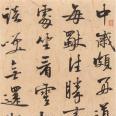 中歲頗好道
每獨往勝事
處坐看雲
談笑無還